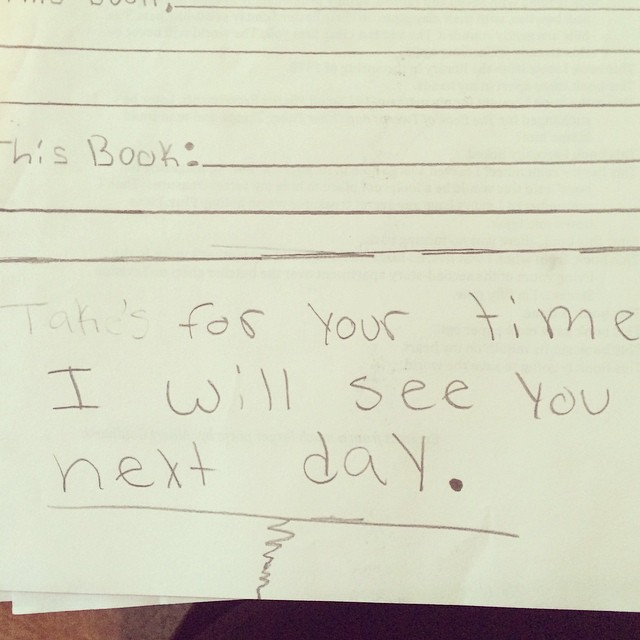 This Book:
This Book:
Take's for your time
I will see you
next day.